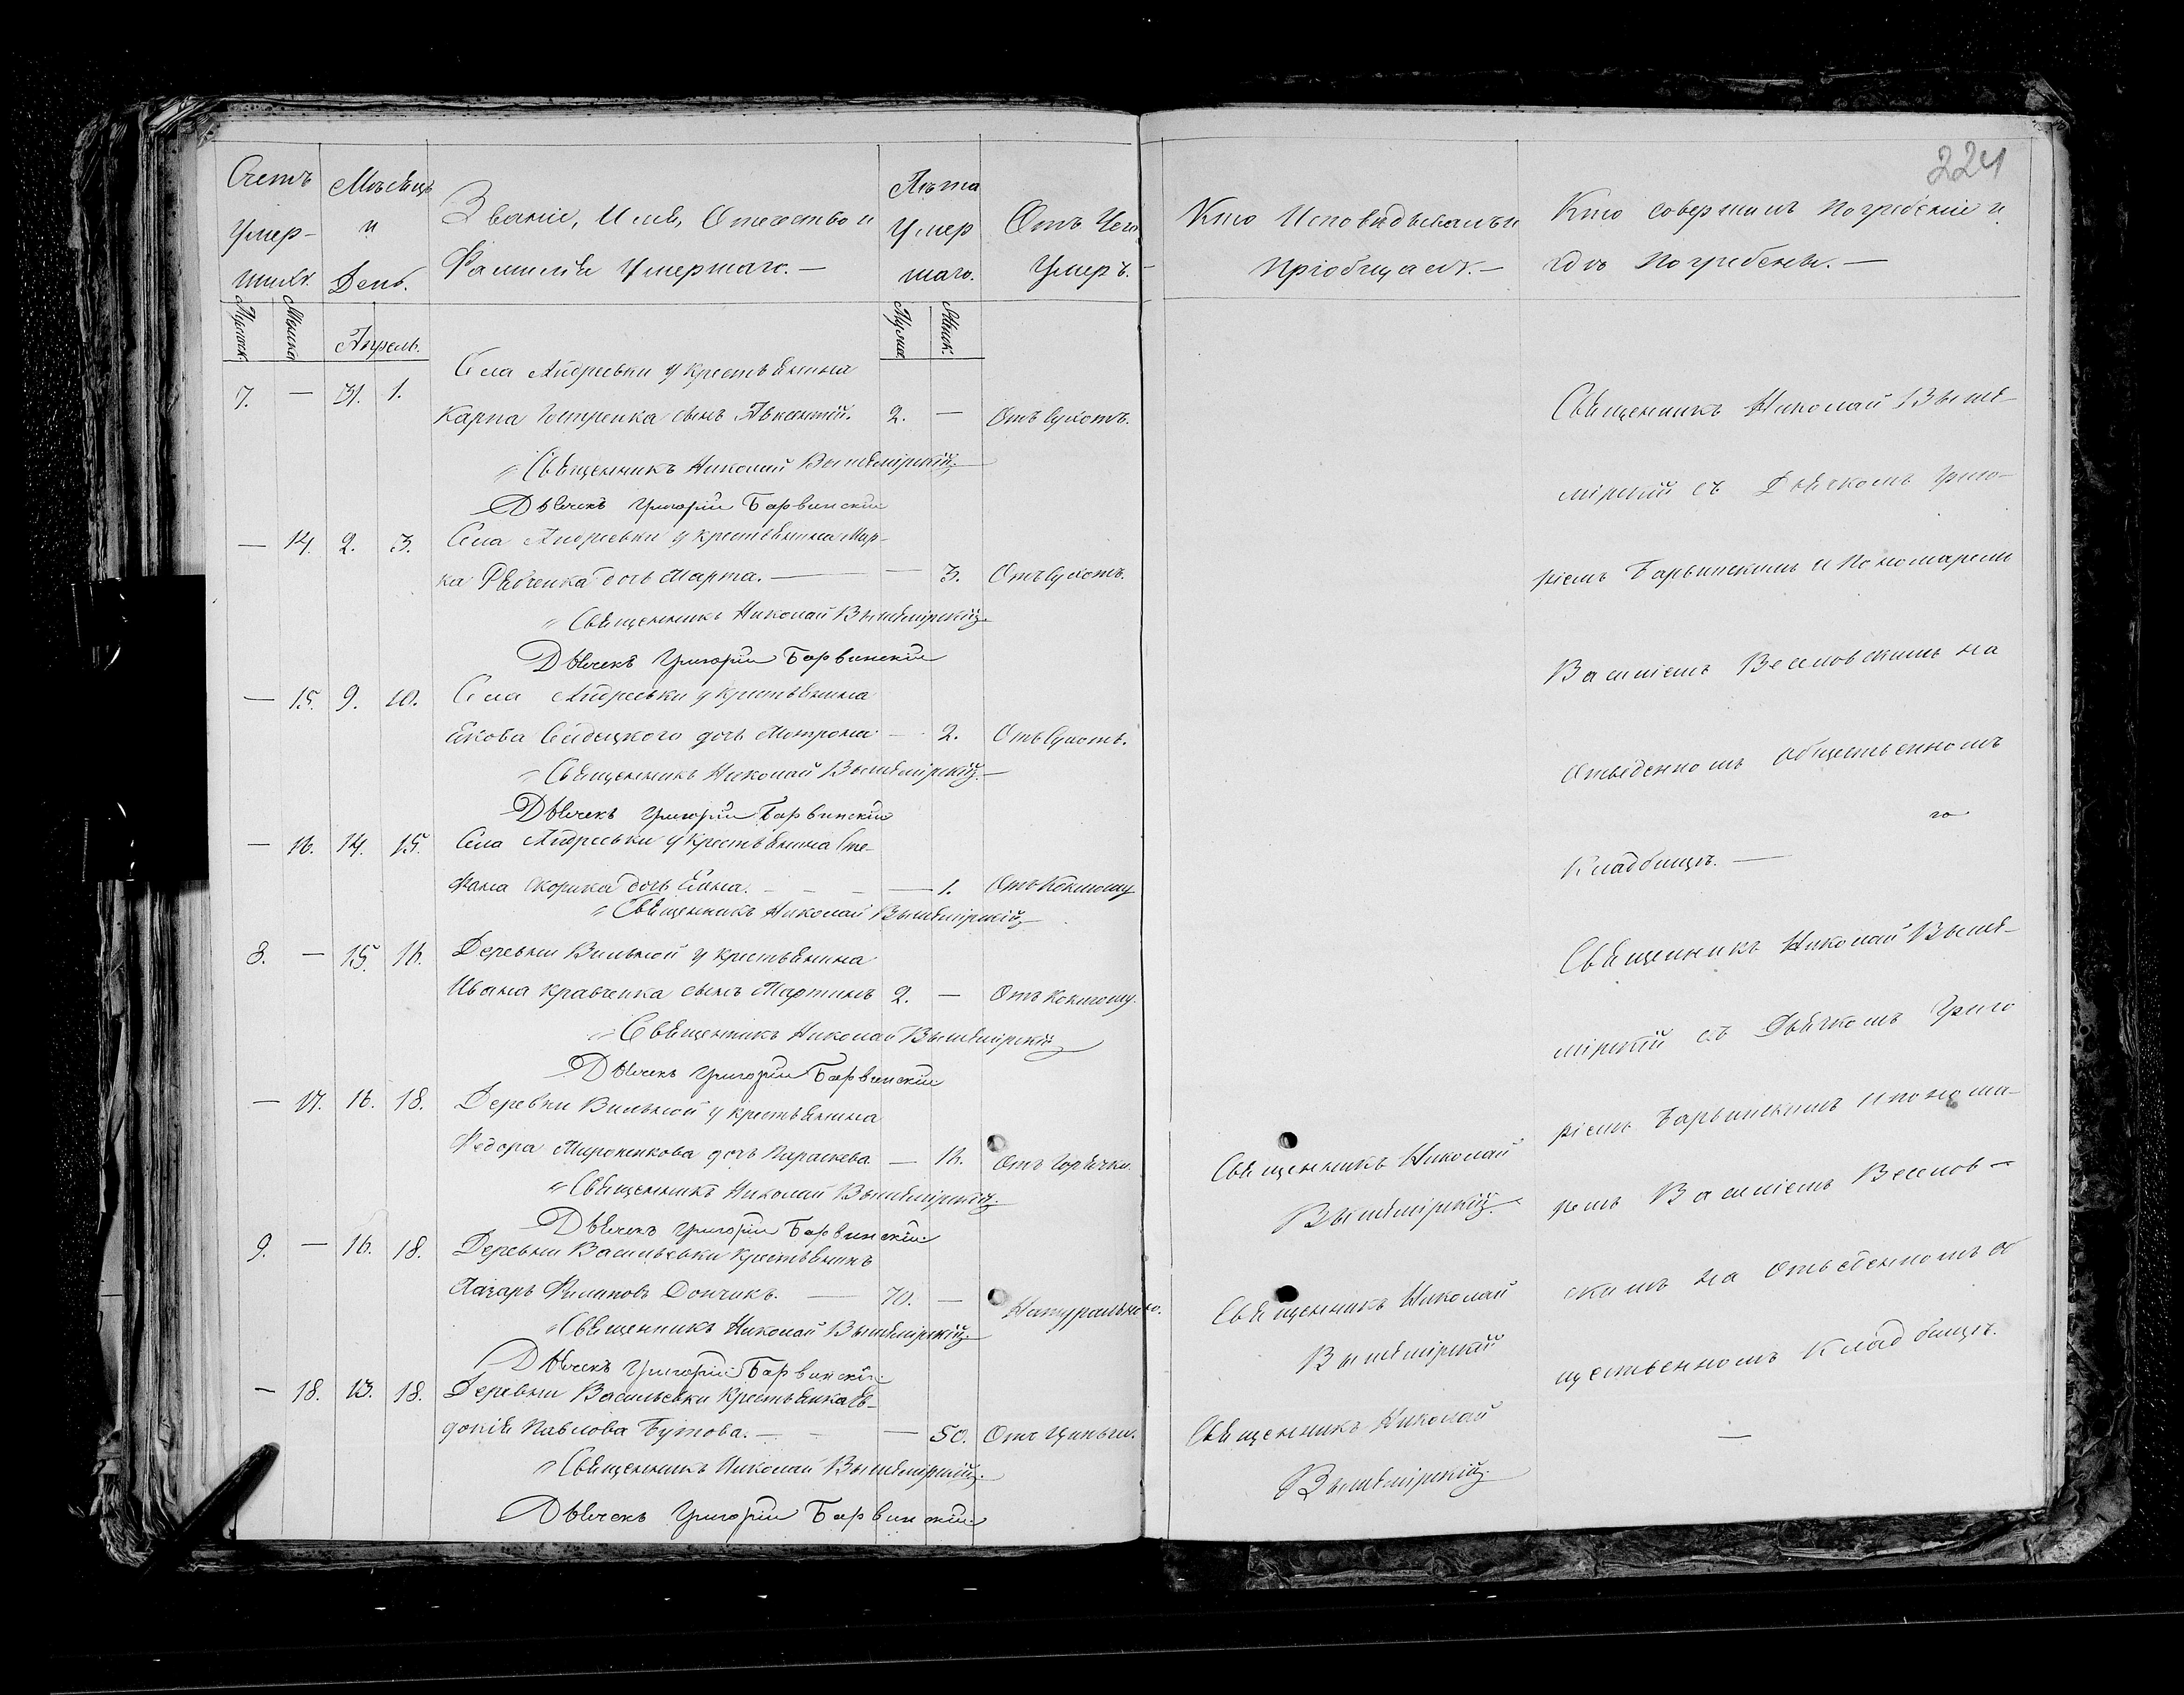 224
Счетъ
Умер-
шихъ.
Мѣсяцъ
и
День.
Званіе, Имя, Отечество и
Фамилія Умершаго.—
Лѣта
Умер
шаго.
Отъ Чего
Умеръ.—
Кто Исповѣдывалъ и
Пріобщалъ.—
Кто совершалъ погребеніе и
гдѣ погребены.—
Апрель.
7. — 31. 1. Села Андреевки у крестьянина
Карпа сынъ Авксентій. 2. — Отъ Сухотъ.
Священникъ Николай Вышемірскій
Дьячекъ Григорій Барвинскій
— 14. 2. 3. Села Андреевки у крестьянина Мар-
ка Рябченка дочь Марта. — — 3. Отъ Сухотъ.
Священникъ Николай Вышемірскій
Дьячекъ Григорій Барвинскій
— 15. 9. 10. Села Андреевки у крестьянина
Якова дочь Матрона — 2. Отъ Сухотъ.
Священникъ Николай Вышемірскій.
Дьячекъ Григорій Барвинскій
— 16. 14. 15. Села Андреевки у крестьянина Сте-
фана Скорика дочь Анна. — 1. Отъ Коклюшу
Священникъ Николай Вышемірскій
8. — 15. 16. Деревни Вильной у крестьянина
Ивана Кравченка сынъ Мартинъ 2. — Отъ Коклюшу.
Священникъ Николай Вышемірскій
Дьячекъ Григорій Барвинскій
— 17. 16. 18. Деревни Вильной у крестьянина
Федора Мироненкова дочь Параскева — 12. Отъ Горячки.
Священникъ Николай Вышемірскій.
Дьячекъ Григорій Барвинскій.
9. — 16. 18. Деревни Васильевки крестьянинъ
Лазарь Филиповъ Дончикъ. — 70. — Натурально.
Священникъ Николай Вышемірскій.
Дьячекъ Григорій Барвинскій.
— 18. 13. 18. Деревни Васильевки Крестьянка Ев-
докія Павлова Бутова. — — 50. Отъ Цынги.
Священникъ Николай Вышемірскій.
Дьячекъ Григорій Барвинскій
Священникъ Николай
Вышемірскій.
Священникъ Николай
Вышемірскій
Священникъ Николай
Вышемірскій.
Священникъ Николай Выше-
мірскій съ Дьячкомъ Григо-
ріемъ Барвинскимъ и Пономаремъ
Василіемъ Веселовскимъ на
Отведенномъ общественномъ
Кладбищѣ. —
Священникъ Николай Выше-
мірскій съ Дьячкомъ Григо
ріемъ Барвинскимъ и понома-
ремъ Василіемъ Веселов-
скимъ на Отведенномъ об
щественномъ Кладбищѣ.
—